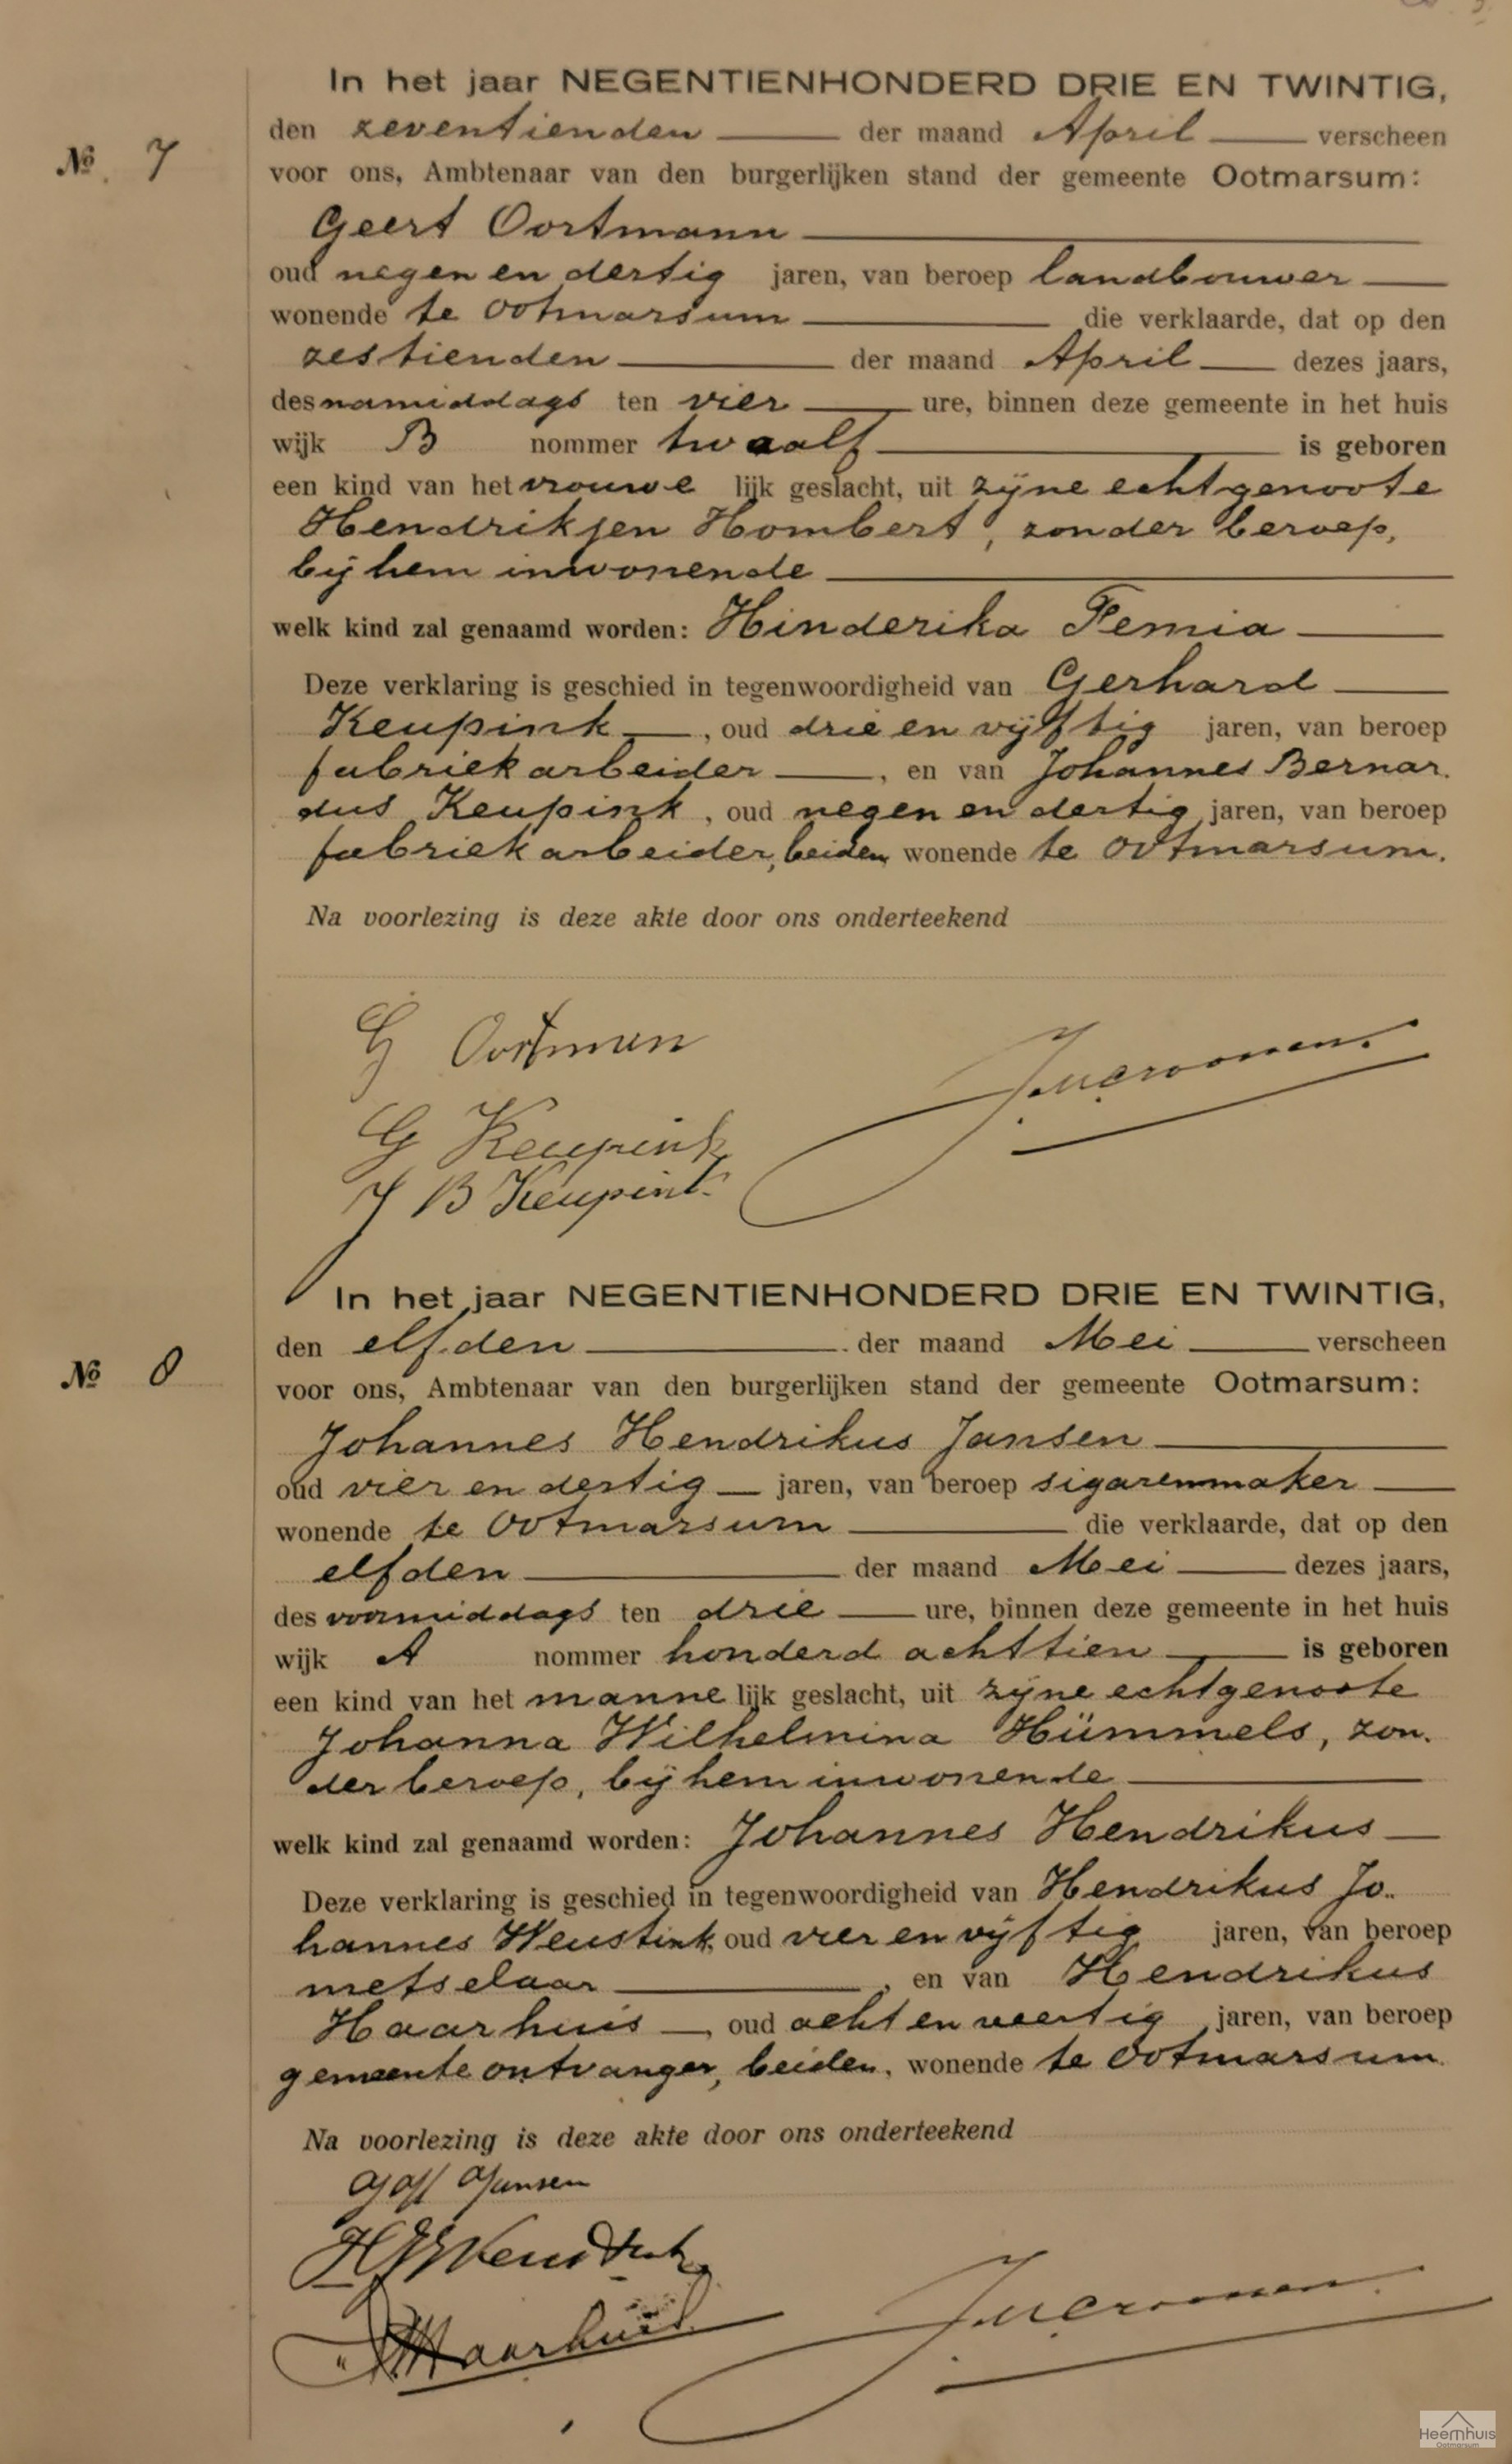 In het jaar NEGENTIENHONDERD DRIE EN TWINTIG,
den zeventienden der maand April verscheen
№ 7
voor ons, Ambtenaar van den burgerlijken stand der gemeente Ootmarsum:
Geert Oortmann
oud negen en dertig jaren, van beroep landbouwer
wonende te Ootmarsum die verklaarde, dat op den
zestienden der maand April dezes jaars,
des namiddags ten vier ure, binnen deze gemeente in het huis
wijk B nommer twaalf is geboren
een kind van het vrouwe lijk geslacht, uit zijne echtgenoote
Hendrikjen Hombert, zonder beroep,
bij hem inwonende
welk kind zal genaamd worden: Hinderika Femia
Deze verklaring is geschied in tegenwoordigheid van Gerhard
Keupink, oud drie en vijftig jaren, van beroep
fabriekarbeider, en van Johannes Bernar.
dus Keupink, oud negen en dertig jaren, van beroep
fabriekarbeider, beiden wonende te Ootmarsum.
Na voorlezing is deze akte door ons onderteekend
G Oortman
G Keupink
J B Keupink
In het jaar NEGENTIENHONDERD DRIE EN TWINTIG,
den elfden der maand Mei verscheen
№ 8
voor ons, Ambtenaar van den burgerlijken stand der gemeente Ootmarsum:
Johannes Hendrikus Jansen
oud vier en dertig jaren, van beroep sigarenmaker
wonende te Ootmarsum die verklaarde, dat op den
elfden der maand Mei dezes jaars,
des voormiddags ten drie ure, binnen deze gemeente in het huis
wijk A nommer honderd achttien is geboren
een kind van het manne lijk geslacht, uit zijne echtgenoote
Johanna Wilhelmina Hümmels, zon.
der beroep, bij hem inwonende
welk kind zal genaamd worden: Johannes Hendrikus
Deze verklaring is geschied in tegenwoordigheid van Hendrikus Jo..
hannes Weustink, oud vier en vijftig jaren, van beroep
metselaar, en van Hendrikus
Haarhuis, oud acht en veertig jaren, van beroep
gemeente ontvanger, beiden, wonende te Ootmarsum.
Na voorlezing is deze akte door ons onderteekend
J H Jansen
H J Weustink
Haarhuis
Heemhuis
Ootmarsum